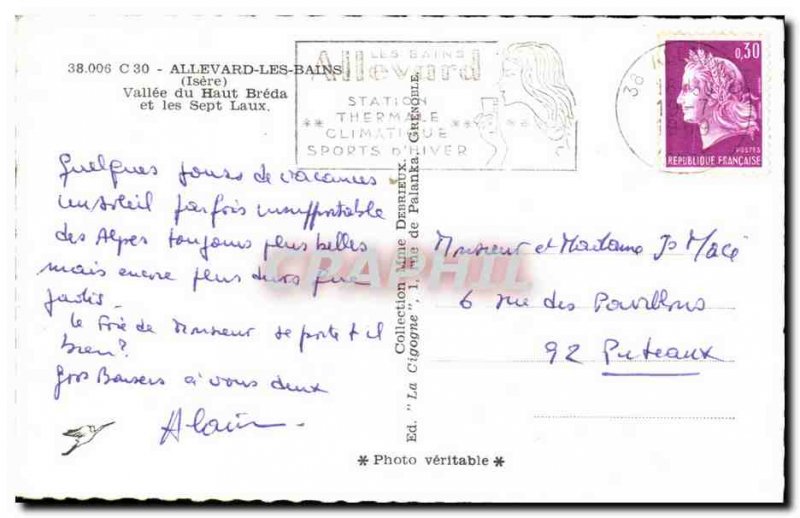 38.006 C 30 - ALLEVARD-LES-BAINS
(Isère)
Vallée du Haut Bréda
et les Sept Laux.
LES BAINS
Allevard
STATION
THERMALE
** CLIMATIQUE **
SPORTS D'HIVER
38
0,30
POSTES
REPUBLIQUE FRANÇAISE
Quelques jours de vacances
un soleil parfois insupportable
des Alpes toujours plus belles
mais encore plus dures que
jadis.
le Foie de Monsieur se porte t il
bien?
Gros Baisers à vous deux
Alain
Collection Mme DEBRIEUX.
Ed. "La Cigogne", 1, rue de Palanka, GRENOBLE.
Monsieur et Madame Macé
6 rue des Pavillons
92 Puteaux
* Photo véritable *
CPAPHIL